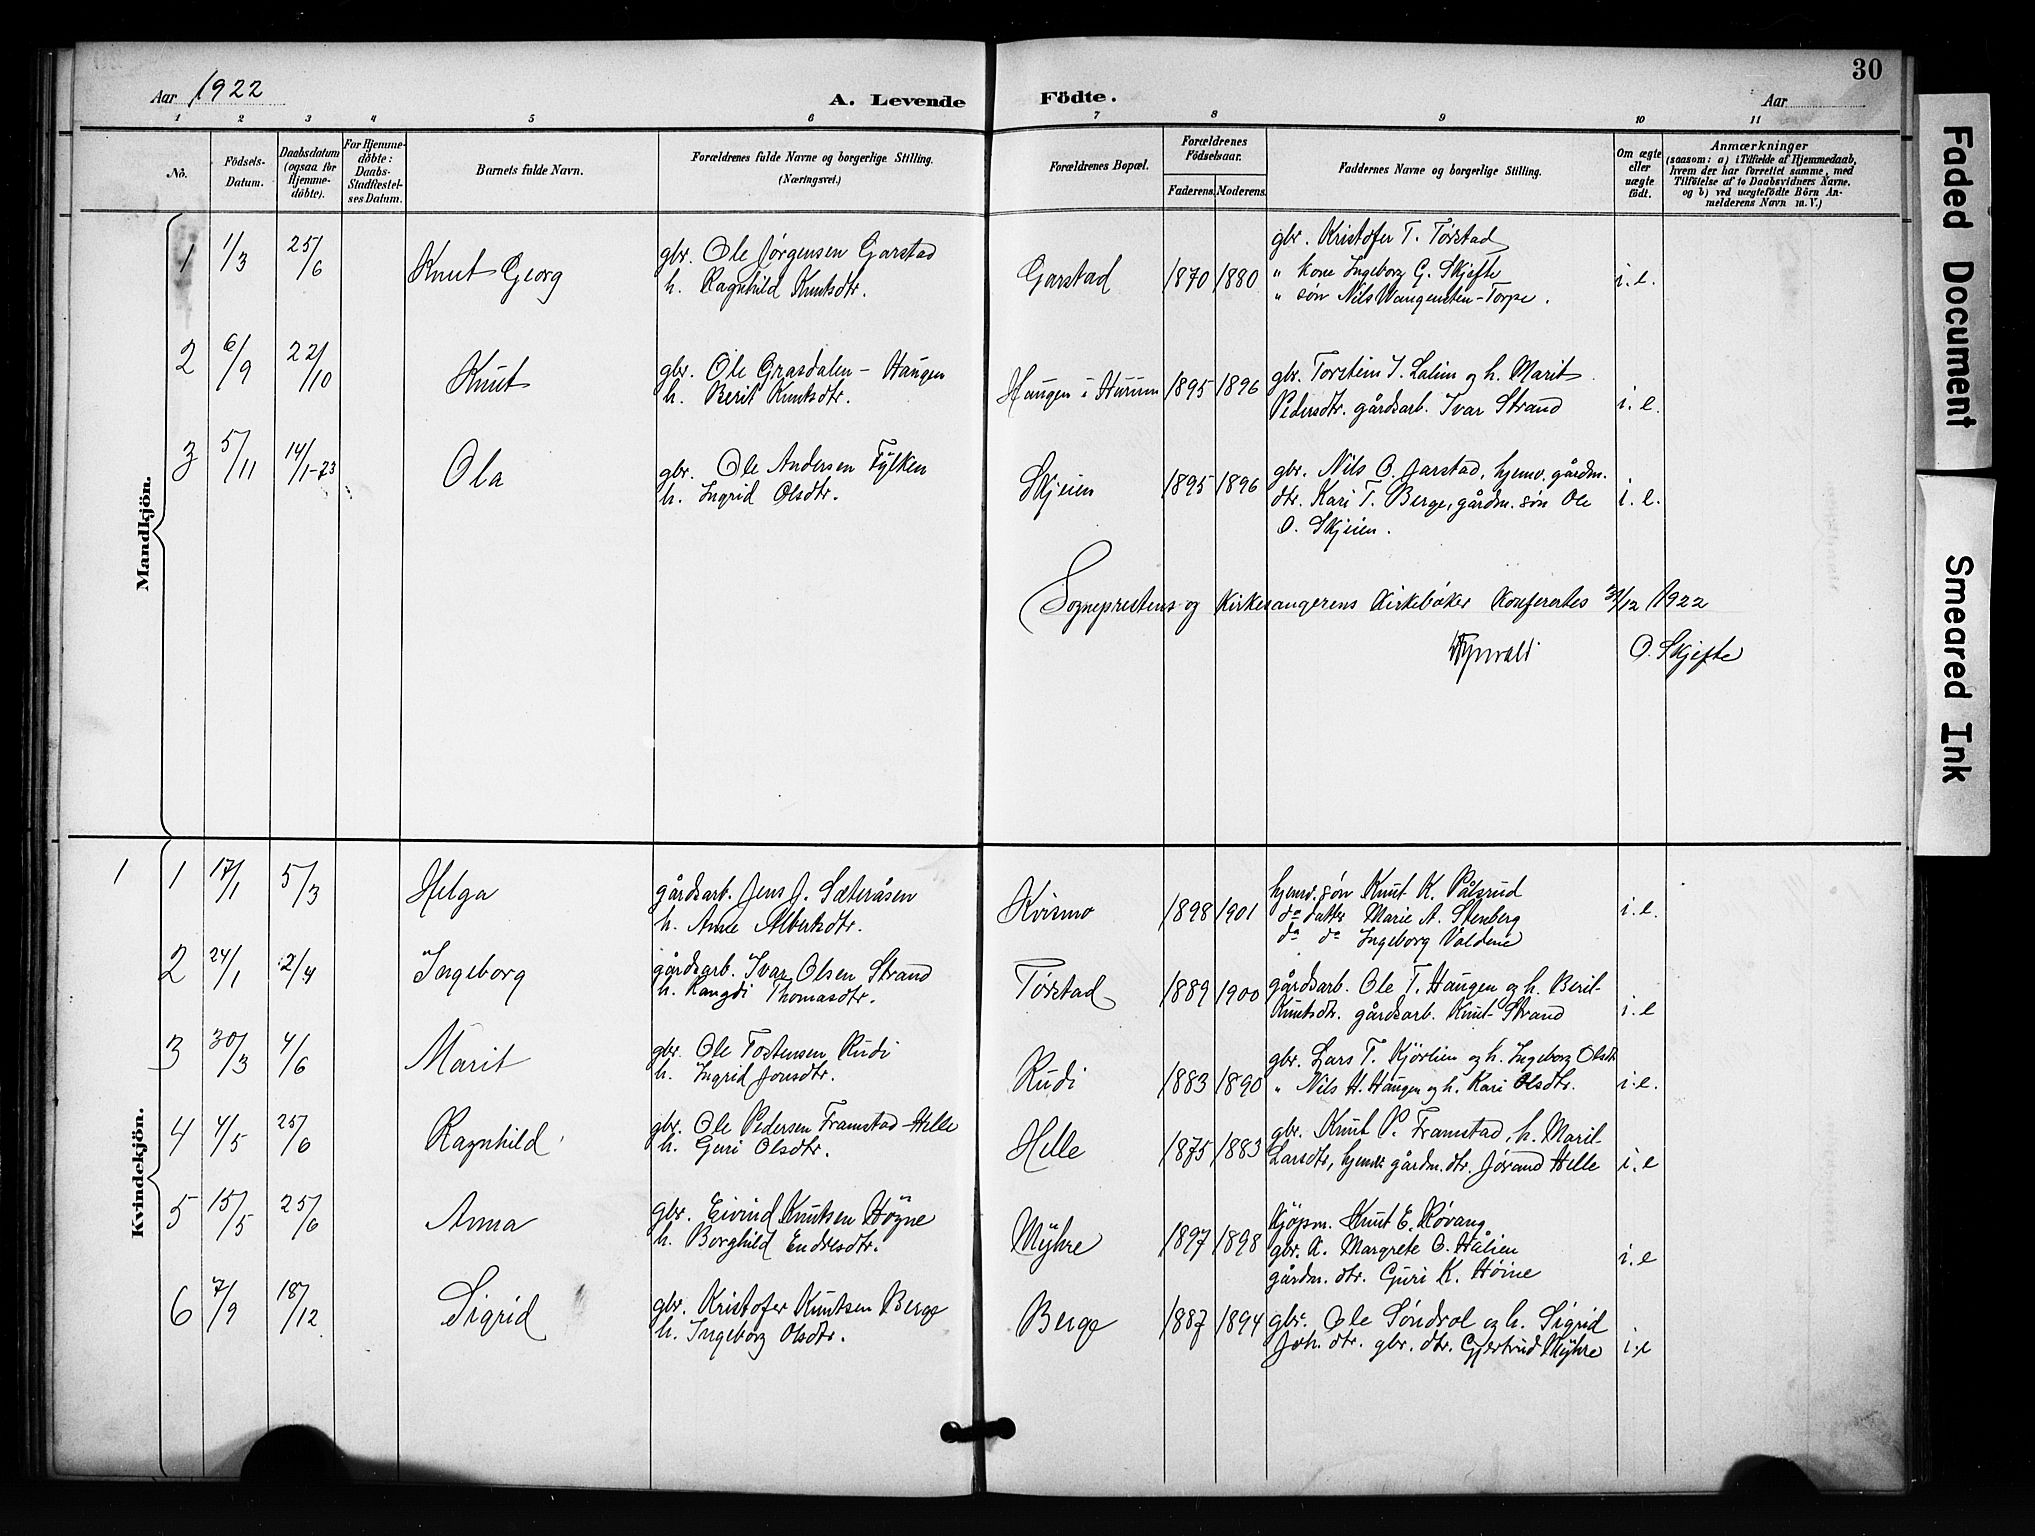 30
Aar 1922
A. Levende Födte.
Aar
1 2 3 4 5 6 7 8 9 10 11
No.
Födsels-Datum.
Daabsdatum (ogsaa for Hjemme-döbte).
For Hjemme-döbte: Daabs-Stadfæstel-ses Datum.
Barnets fulde Navn.
Forældrenes fulde Navne og borgerlige Stilling. (Næringsvei.)
Forældrenes Bopæl.
Forældrenes Födselsaar.
Faderens. Moderens.
Faddernes Navne og borgerlige Stilling.
Om ægte eller uægte födt.
Anmærkninger
(saasom: a) i Tilfælde af Hjemmedaab,
hvem der har forrettet samme, med
Tilföielse af to Daabsvidners Navne.
og b) ved uægtefödte Börn An-
melderens Navn m. V.)
Mandkjön.
1 1/3 25/6 Knut Georg
gbr. Ole Jørgensen Garstad
h. Ragnhild Knutsdtr.
Garstad 1870 1880
gbr. Kristofer T. Tørstad
" kone Ingeborg G. Skjefte
" søn Nils Wangensten-Torpe.
i. e.
2 6/9 22/10 Knut
gbr. Ole Grasdalen - Haugen
h. Berit Knutsdtr.
Haugen i Hurum 1895 1896
gbr. Torstein I. Lalim og h. Marit
Pedersdtr. gårdsarb. Ivar Strand
i. e.
3 5/11 14/1-23 Ola
gbr. Ole Andersen Fylken
h. Ingrid Olsdtr.
Skjeien 1895 1896
gbr. Nils O. Jarstad, hjemv. gårdm.
dtr. Kari T. Berge, gårdm. søn Ole
O. Skjeien.
i. e.
Sogneprestens og Kirkesangerens Kirkebøker konferertes 31/12 1922
O. Skjefte
Kvindekjön.
1 1 17/1 5/3 Helga
gårdsarb. Jens J. Sæteråsen
h. Anne Albertsdtr.
Kvismo 1898 1901
hjemv. søn Knut K. Pålsrud
do datter Marie A. Stenberg
do do Ingeborg Valdene
i. e.
2 24/1 2/4 Ingeborg
gårdsarb. Ivar Olsen Strand
h. Rangdi Thomasdtr.
Tørstad 1889 1900
gårdsarb. Ole T. Haugen og h. Berit
Knutsdtr. gårdsarb. Knut Strand
i. e
3 30/3 4/6 Marit
gbr. Ole Tostensen Rudi
h. Ingrid Jonsdtr.
Rudi 1883 1890
gbr. Lars T. Kjörlien og h. Ingeborg Olsdtr
" Nils H. Haugen og h. Kari Olsdtr.
i. e.
4 4/5 25/6 Ragnhild
gbr. Ole Pedersen Framstad-Helle
h. Guri Olsdtr.
Helle 1875 1883
gbr. Knut P. Framstad, h. Marit
Larsdtr, hjemv. gårdm. dtr. Jørand Helle
i. e
5 15/5 25/6 Anna
gbr. Eivind Knutsen Høyne
h. Borghild Endresdtr.
Myhre 1897 1898
Kjøpm. Knut E. Røvang
gbr. k. Margrete O. Hålien
gårdm. dtr. Guri K. Høine
i. e
6 7/9 18/12 Sigrid
gbr. Kristofer Knutsen Berge
h. Ingeborg Olsdtr.
Berge 1887 1894
gbr. Ole Söndrol og h. Sigrid
Joh. dtr. gbr. dtr. Gjertrud Myhre
i. e
Faded Document
Smeared Ink